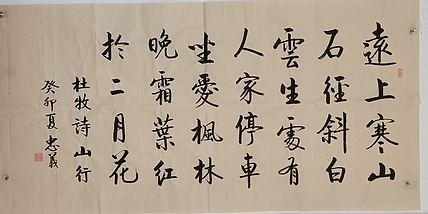 遠上寒山
石徑斜白
雲生處有
人家停車
坐愛楓林
晚霜葉紅
於二月花
杜牧詩山行
癸卯夏忠義